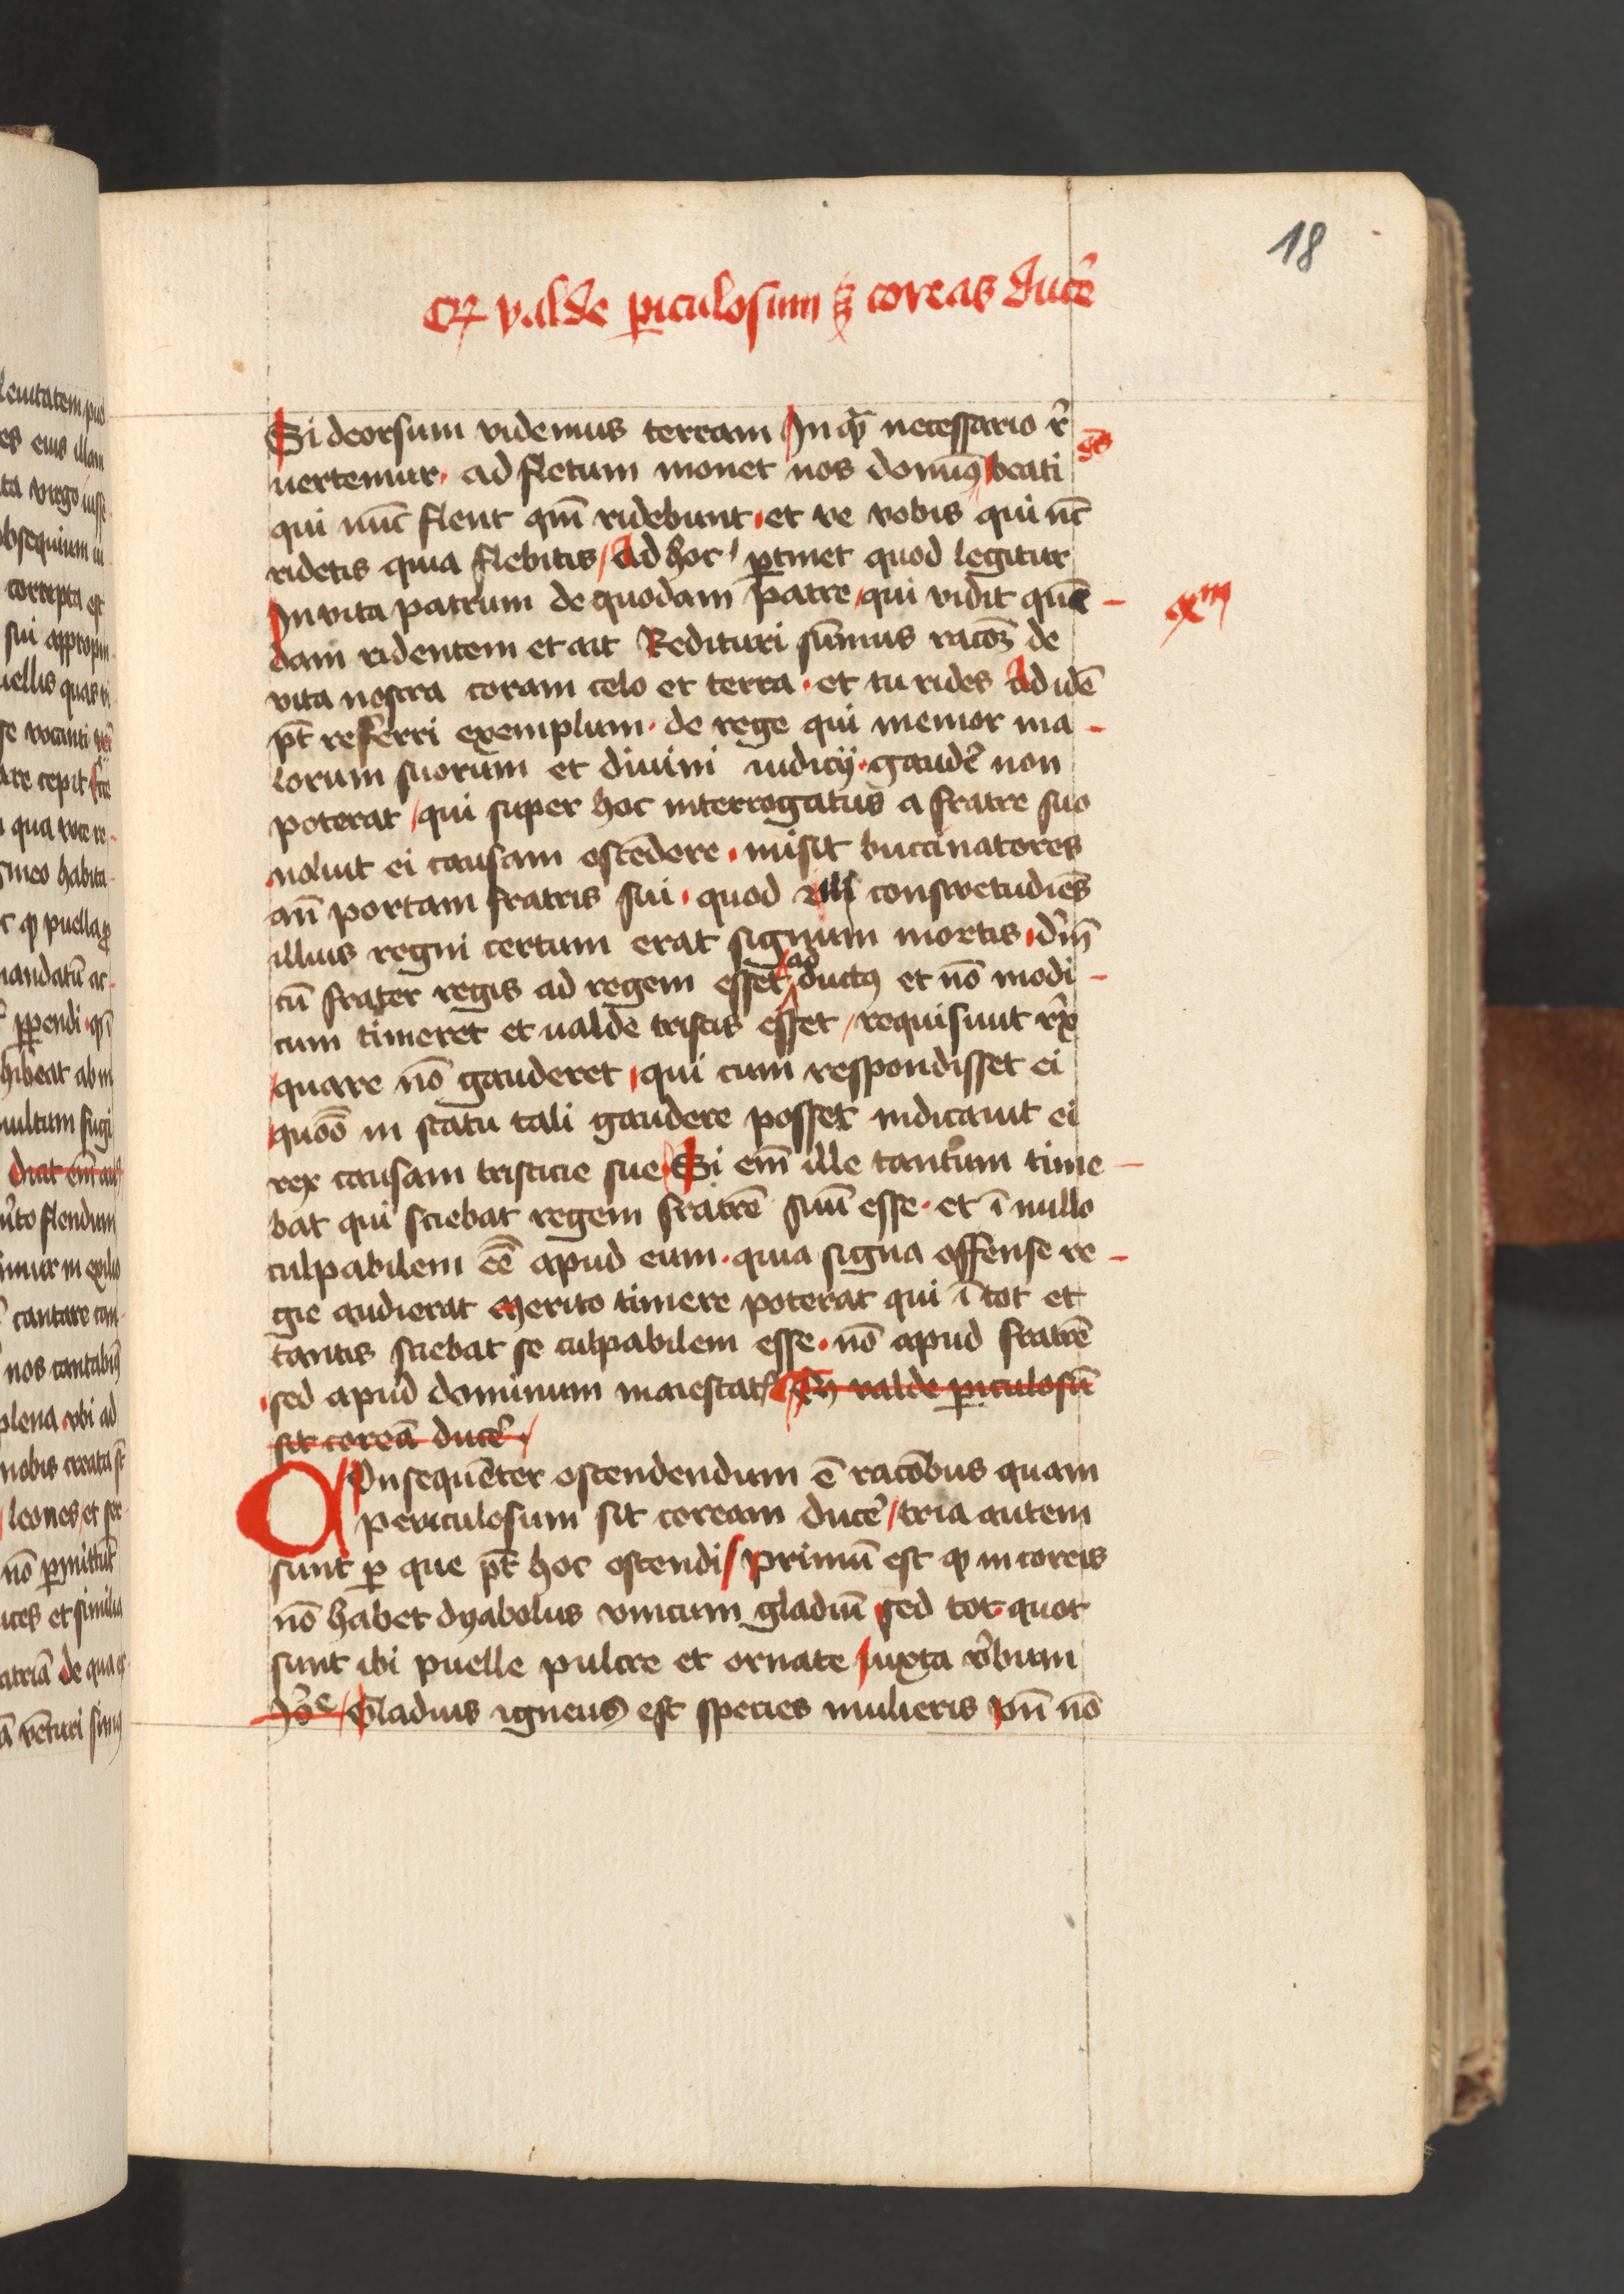 18
Qz valde ꝑiculosum ꝫ coreas ducẽ
Si deorsum videmus terram In qͣ necessario rͤ
uertemur · ad fletum monet nos domĩꝰ beati
qui nũc flent qm̃ ridebunt · et ve vobis qui nc̃
ridetis quia flebitis / Ad hoc ꝑtinet quod legitur
In vita patrum de quodam patre / qui vidit quē -
dam ridentem et ait Redituri sumus racoꝫ de
vita nostra coram celo et terra · et tu rides Ad idē
pt̃ referri exemplum · de rege qui memor ma -
lorum suorum et diuini iudicij · gaudẽ non
poterat / qui super hoc interrogatus a fratre suo
noluit ei causam ostēdere · misit buccinatores
an̄ portam fratris sui · quod consuetudiēs
illius regni certum erat signum mortis · dm̃
cū frater regis ad regem esset ad ductꝰ et nō modi -
cum timeret et ualde tristis esset / requisiuit rx̃
quare nō gauderet · qui cum respondisset ei
quōō in statu tali gaudere posset indicauit ei
rex causam tristicie sue · Si em̄ ille tantum time -
bat qui sciebat regem fratrē suū esse · et ī nullo
culpabilem eē apud eum · quia signa offense re -
gie audierat Merito timere poterat qui ī tot et
tantis sciebat se culpabilem esse · nō apud fratrē
sed apud dominum maiestatꝭ Qz valde ꝑiculosū
sit coreā ducẽ ·
COnsequēter ostendendum ē racōbus quam
periculosum sit coream ducẽ / tria autem
sunt ꝑ que pt̃ hoc ostendi / primū est qꝫ in coreis
nō habet dyabolus vnicum gladiū sed tot quot
sunt ibi puelle pulcre et ornate / iuxta v̄bum
Gladius igneus est species mulieris vn̄ nō